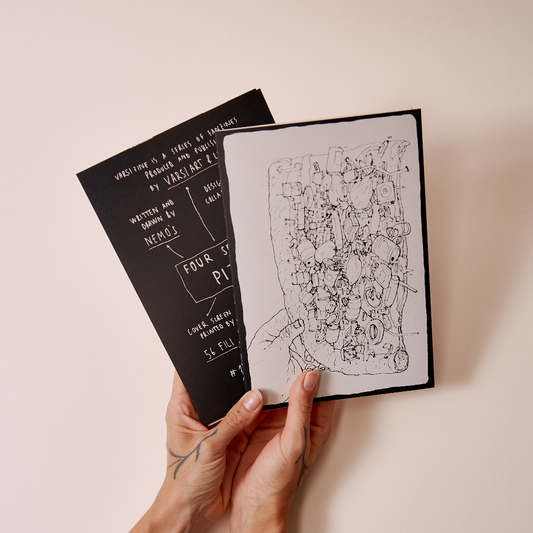 VARSIZINE IS A SERIES OF FANZINES
PRODUCED AND
BY VARSI ART &
WRITTEN AND
DRAWN BY
NEMO'S
FOUR
COVER SCREEN
PRINTED BY
56 FILI